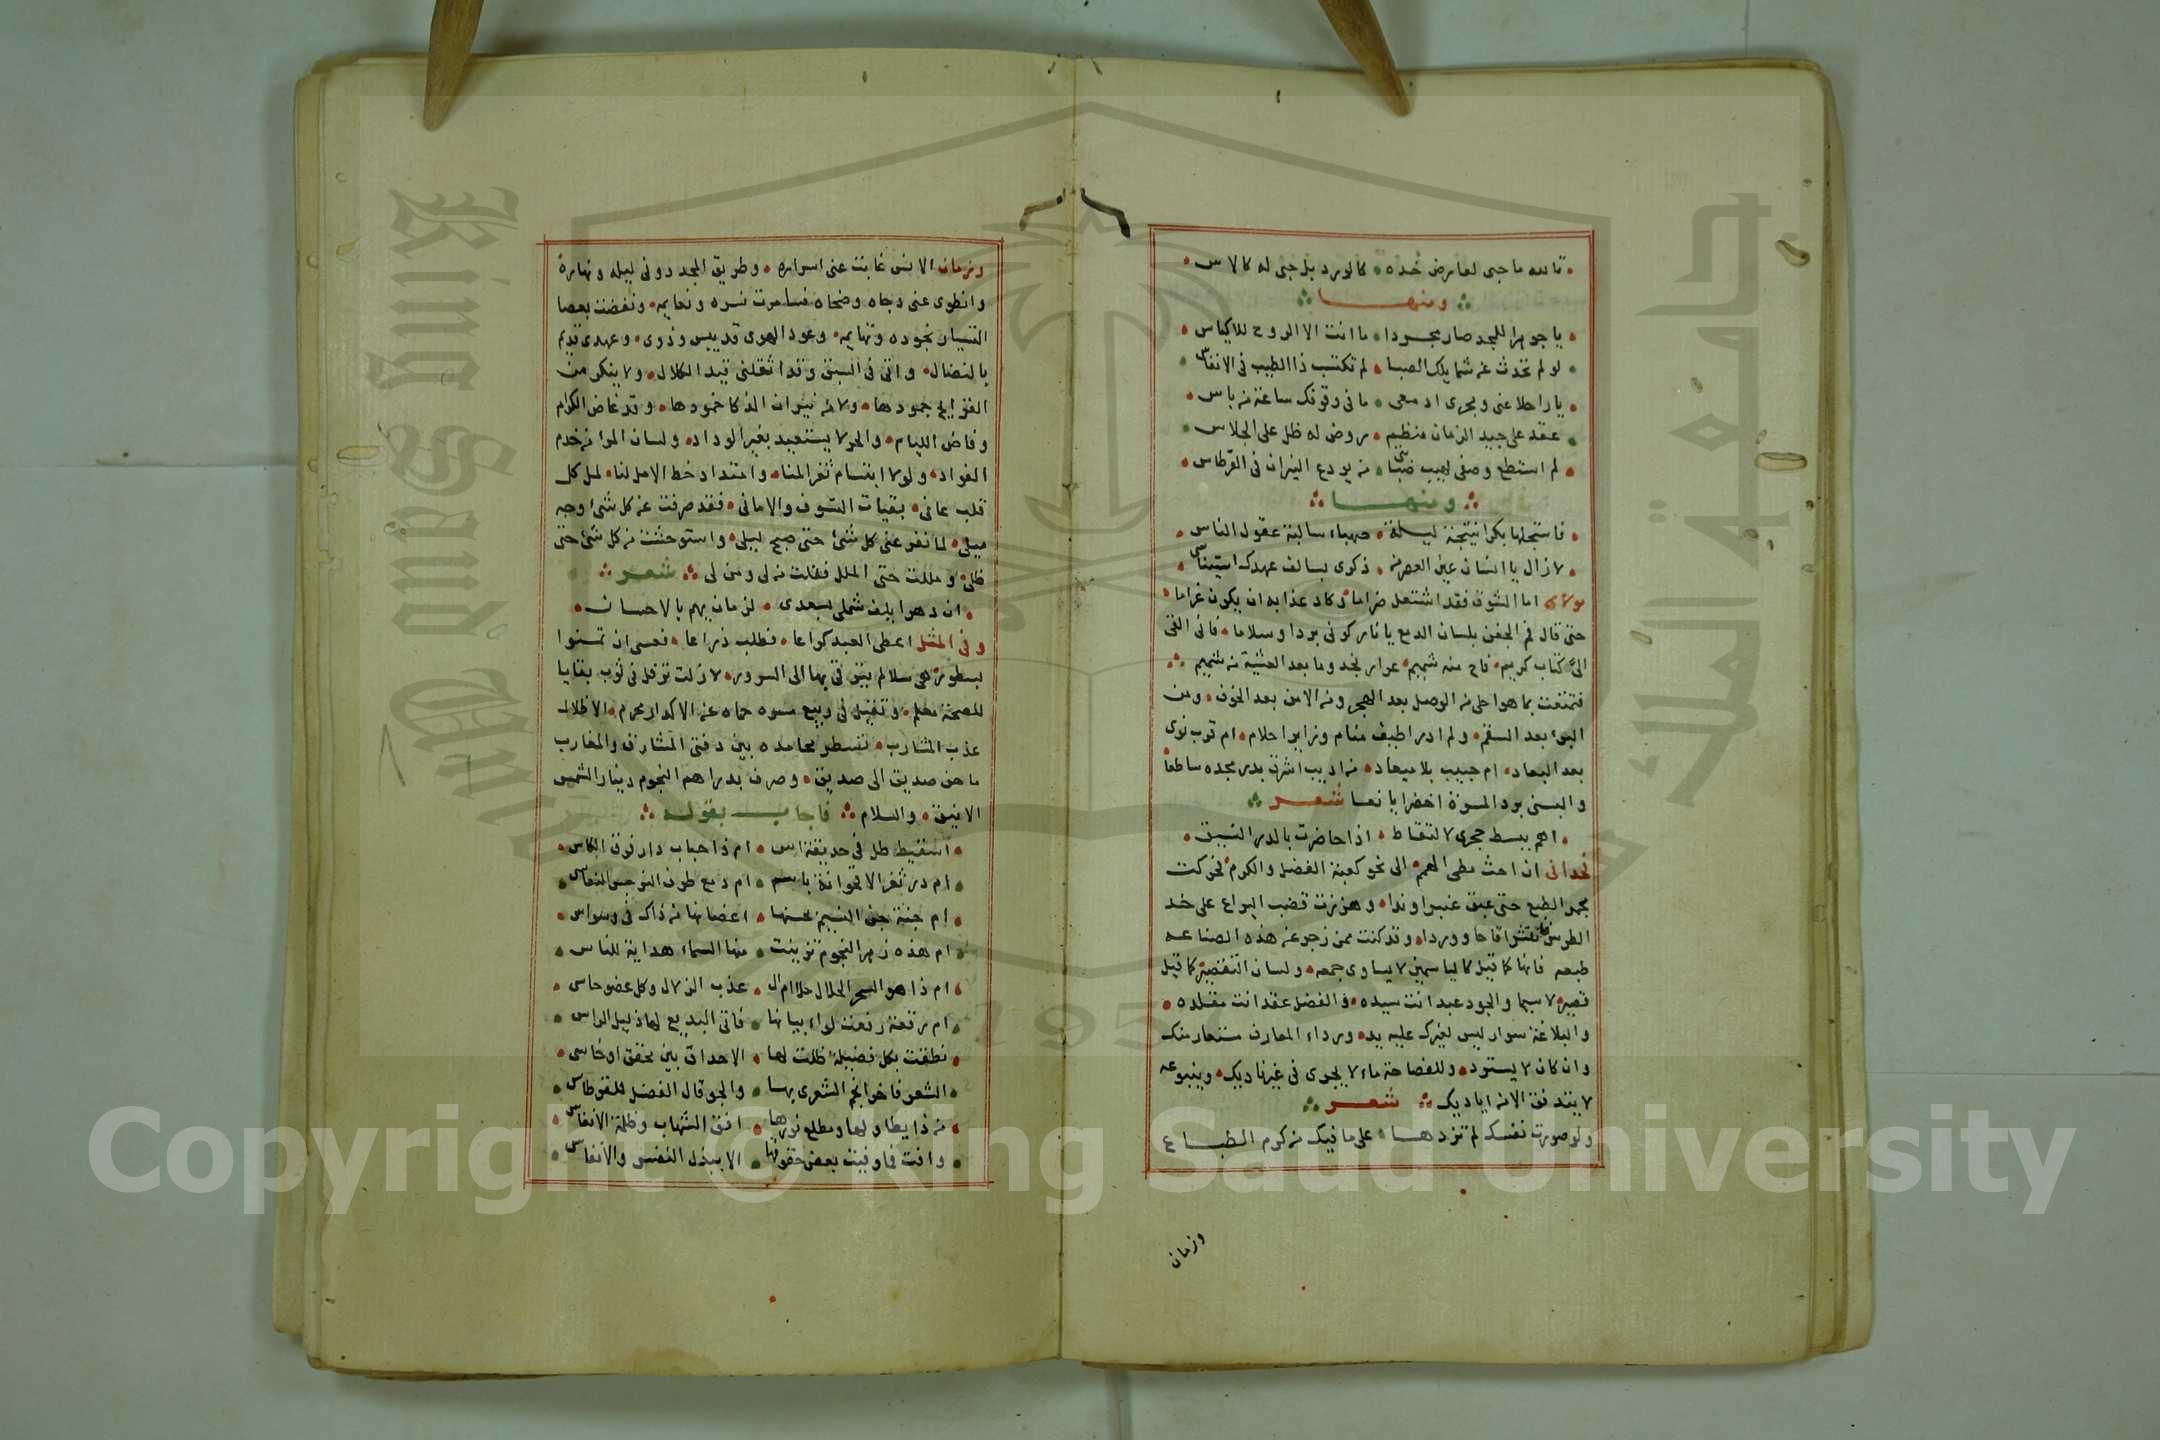 تالله ما جنى لعارض خده كالورد بل جنى له كالاس
ومنها
يا جوهرا للمجد صار مجردا ما انت الا الروح للاكياس
لو لم تحدث عن شمايلك الصبا لم تكتسب ذا الطيب في الانفاس
يا راحلا عني وبجرى ادمعي ما في وقوفك ساعة من باس
عقد على جيد الزمان منظم روض له ظل على الجلاس
لم استطع وصفي لهيب من يودع النيران في القرطاس
ومنها
فاستجلها بكرا نتيجة ليلة صهباء سالبة عقول الناس
لا زال يا انسان عين العصر من ذكرى بسالف عهدك استيناسي
مولاي اما الشوق فقد اشتعل ضراما وكاد عذابه ان يكون غراما
حتى قال فم الجفن بلسان الدمع يا نار كوني بردا وسلاما فاني القي
الي كتاب كريم فاح منه شميم عرار نجد وما بعد العشية من شميم
فتمتعت بما هو احلى من الوصل بعد الهجر ومن الامن بعد الخوف ومن
البرء بعد السقم ولم ادر اطيف منام وزاير احلام ام قرب نوى
بعد البعاد ام حبيب بلا ميعاد من اديب اشرق بدر مجده ساطعا
والبسني برد المسرة اخضرا يانعا شعر
اهم ببسط حجرى لالتقاط اذا حاضرت بالدر النسيق
فحداني ان احث مطي الهمم الى نحو كعبة الفضل والكرم فحركت
مجمر الطبع حتى عبق عنبرا وندا وهززت قضب اليراع على خد
الطرس نقش اقاحا ووردا وقد كنت ممن زجر عن هذه الصناعه
طبعه فانها كما قيل كالياسمين لا يساوى جمعه ولسان التقصير كما قيل
قصير لا سيما والجود عبد انت سيده والفضل عقد انت مقلده
والبلاغة سوار ليس لغيرك عليه يد ورداء المعارف مستعار منك
وان كان لا يسترد وللفصاحة ماء لا يجرى في غير ناديك وينبوعه
لا يتدفق الا من اياديك شعر
ولو صورت نفسك لم تزدها على ما فيك من كرم الطباع
وزمان
وزمان الانس غابت عني اسراره وطريق المجد دوني ليله ونهاره
وانطوى عني دجاه وضحاه فسامرت نسره ونعايمه ونفضت بعصا
التسيار نجوده وتهايمه وعود الهوى قد يبس وذوى وعهدى قديم
بالنضال واني في السبق وقد اثقلني قيد الكلال ولا ينكر من
القرايح جمودها ولا من نيران الذكا خمودها وقد غاض الكرام
وفاض الليام والحر لا يستعبد بغير الوداد ولسان المرا من خدم
الفواد ولولا ابتسام ثغر المنا وامتداد خط الامل لنا لمل كل
قلب عاني بقيات التسوف والاماني فقد صرفت عن كل شئ وجه
ميلي لما نفر عني كل شئ حتى صبح ليلي واستوحشت من كل شئ حتى
ظلي ومللت حتى الملل فقلت من لي ومن لي شعر
ان دهرا يلف شملي بسعدى لزمان يهم بالاحسان
وفي المثل اعطى العبد كراعا فطلب ذراعا فعسى ان تمنوا
بسطور هي سلالم يترقى بها الى السرور لا زلت ترفل في ثوب بقايا
للصحة معلم وتقيل في ربيع مسره حماه عن الاكدار محرم الاظلال
عذب المشارب تسطر محامده بين دفتي المشارق والمغارب
ما حن صديق الى صديق وصرف بدراهم النجوم دينار الشمس
الانيق والسلام فاجاب بقوله
اسقيط طل في حديقة اس ام ذا حباب دار فوق الكاس
ام در ثغر الاقحوانة باسم ام دمع طرف النرجس النعاس
ام جنة جن النسيم بحسنها اغصانها من ذاك في وسواس
ام هذه زهر النجوم تزينت منها السماء هداية للناس
ام ذا هو السحر الحلال حلا ام ال عذب الزلال وكل عضو حاسي
ام رقعة رفعت لواء بيانها فاتى البديع لها ذليل الراس
نطقت بكل فضيلة ظلت لها الاحداق بين محقق او خاسي
الشعر فاخر انجم الشعرى بها والجو قال الفضل للقرطاس
من ذا يطاولها ومطلع نورها افق الشهاب وظلمة الانقاس
وانت فاوفيت بعض حقوقها الا ببذل النفس والانفاس
Copyright © King Saud University